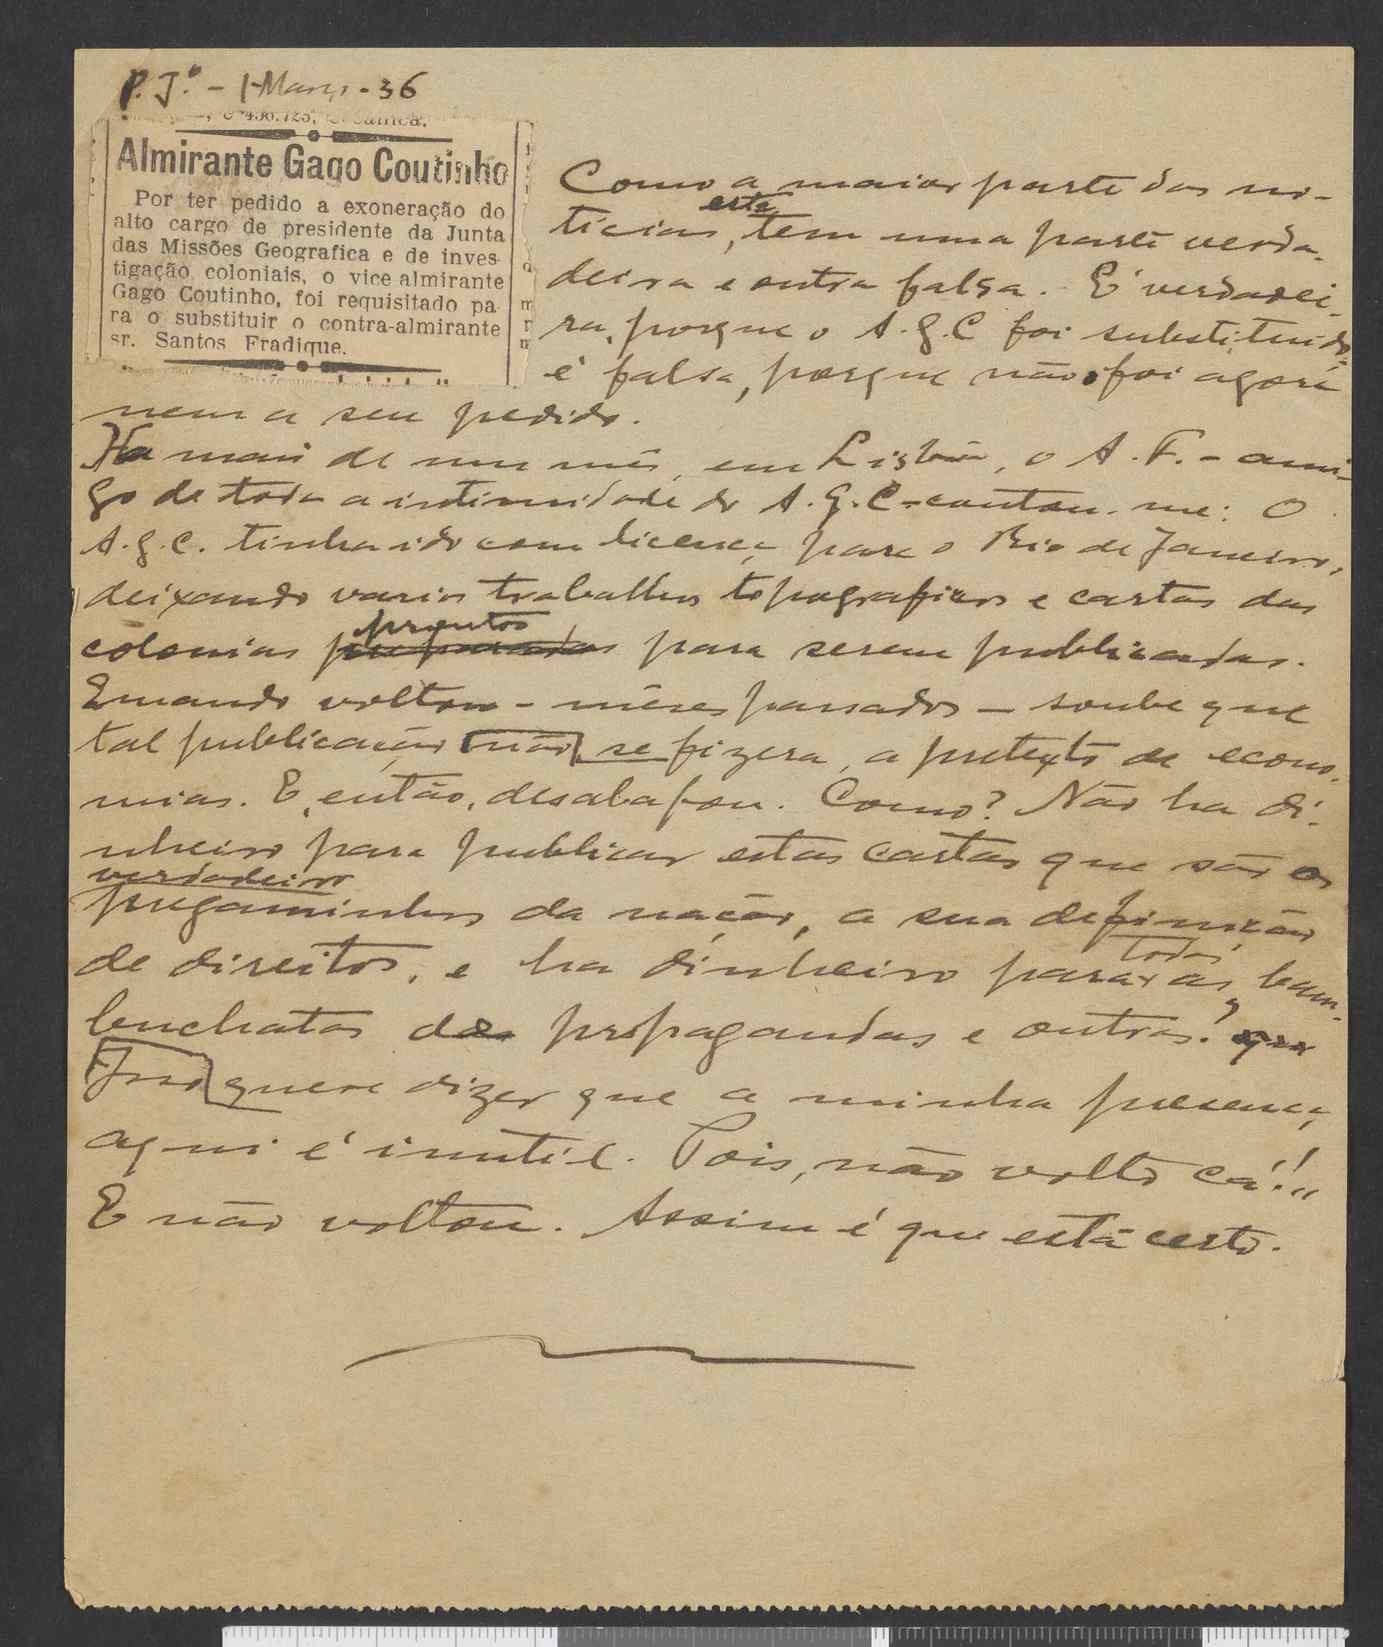 P. J.º - 1-Março - 36
Almirante Gago Coutinho
Por ter pedido a exoneração do
alto cargo de presidente da Junta
das Missões Geografica e de inves-
tigação coloniais, o vice almirante
Gago Coutinho, foi requisitado pa-
ra o substituir o contra-almirante
sr. Santos Fradique.
Como a maior parte das no-
ticias, esta tem uma parte verda-
deira e outra falsa. É verdadei-
ra, porque o A.G.C foi substituido,
é falsa, porque não foi agora
nem a seu pedido.
Ha mais de um mês, em Lisboa, o A. F. - ami-
go de toda a intimidade do A.G.C - contou-me: O
A.G.C. tinha ido com licença para o Rio de Janeiro,
deixando varios trabalhos topograficos e cartas das
colonias preparados prontos para serem publicadas.
Quando voltou - mêses passados - soube que
tal publicação não se fizera, a pretexto de econo-
mias. E, então, desabafou. Como? Não ha di-
nheiro para publicar estas cartas que são os
verdadeiro
pregaminhos da nação, a sua definição
de direitos, e ha dinheiro para todas as bam-
buchatas de propagandas e outras?
Isso quere dizer que a minha presença
aqui é inutil. Pois, não volto cá!"
E não voltou. Assim é que está certo.